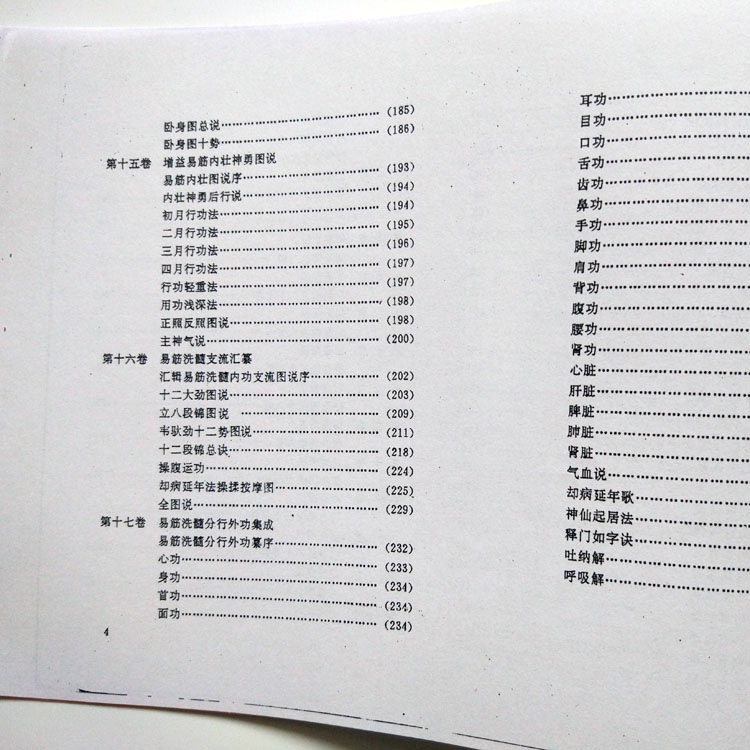 卧身图总说……(185)
卧身图十势……(186)
第十五卷 增益易筋内壮神勇图说
易筋内壮图说序……(193)
内壮神勇后行说……(194)
初月行功法……(194)
二月行功法……(195)
三月行功法……(196)
四月行功法……(197)
行功轻重法……(197)
用功浅深法……(198)
正照反照图说……(198)
主神气说……(200)
第十六卷 易筋洗髓支流汇纂
汇辑易筋洗髓内功支流图说序……(202)
十二大劲图说……(203)
立八段锦图说……(209)
韦驮劲十二势图说……(211)
十二段锦总诀……(218)
操腹运功……(224)
却病延年法操揉按摩图……(225)
全图说……(229)
第十七卷 易筋洗髓分行外功集成
易筋洗髓分行外功纂序……(232)
心功……(233)
身功……(234)
首功……(234)
面功……(234)
4
耳功……
目功……
口功……
舌功……
齿功……
鼻功……
手功……
脚功……
肩功……
背功……
腹功……
腰功……
肾功……
心脏……
肝脏……
脾脏……
肺脏……
肾脏……
气血说……
却病延年歌……
神仙起居法……
释门如字诀……
吐纳解……
呼吸解……